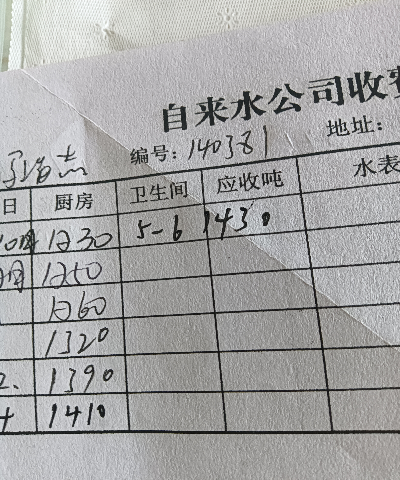 自来水公司收费
编号: 140381 地址:
日 厨房 卫生间 应收吨 水表
10月 1230 5-6 1430
月 1250
1260
1320
2. 1390
1410